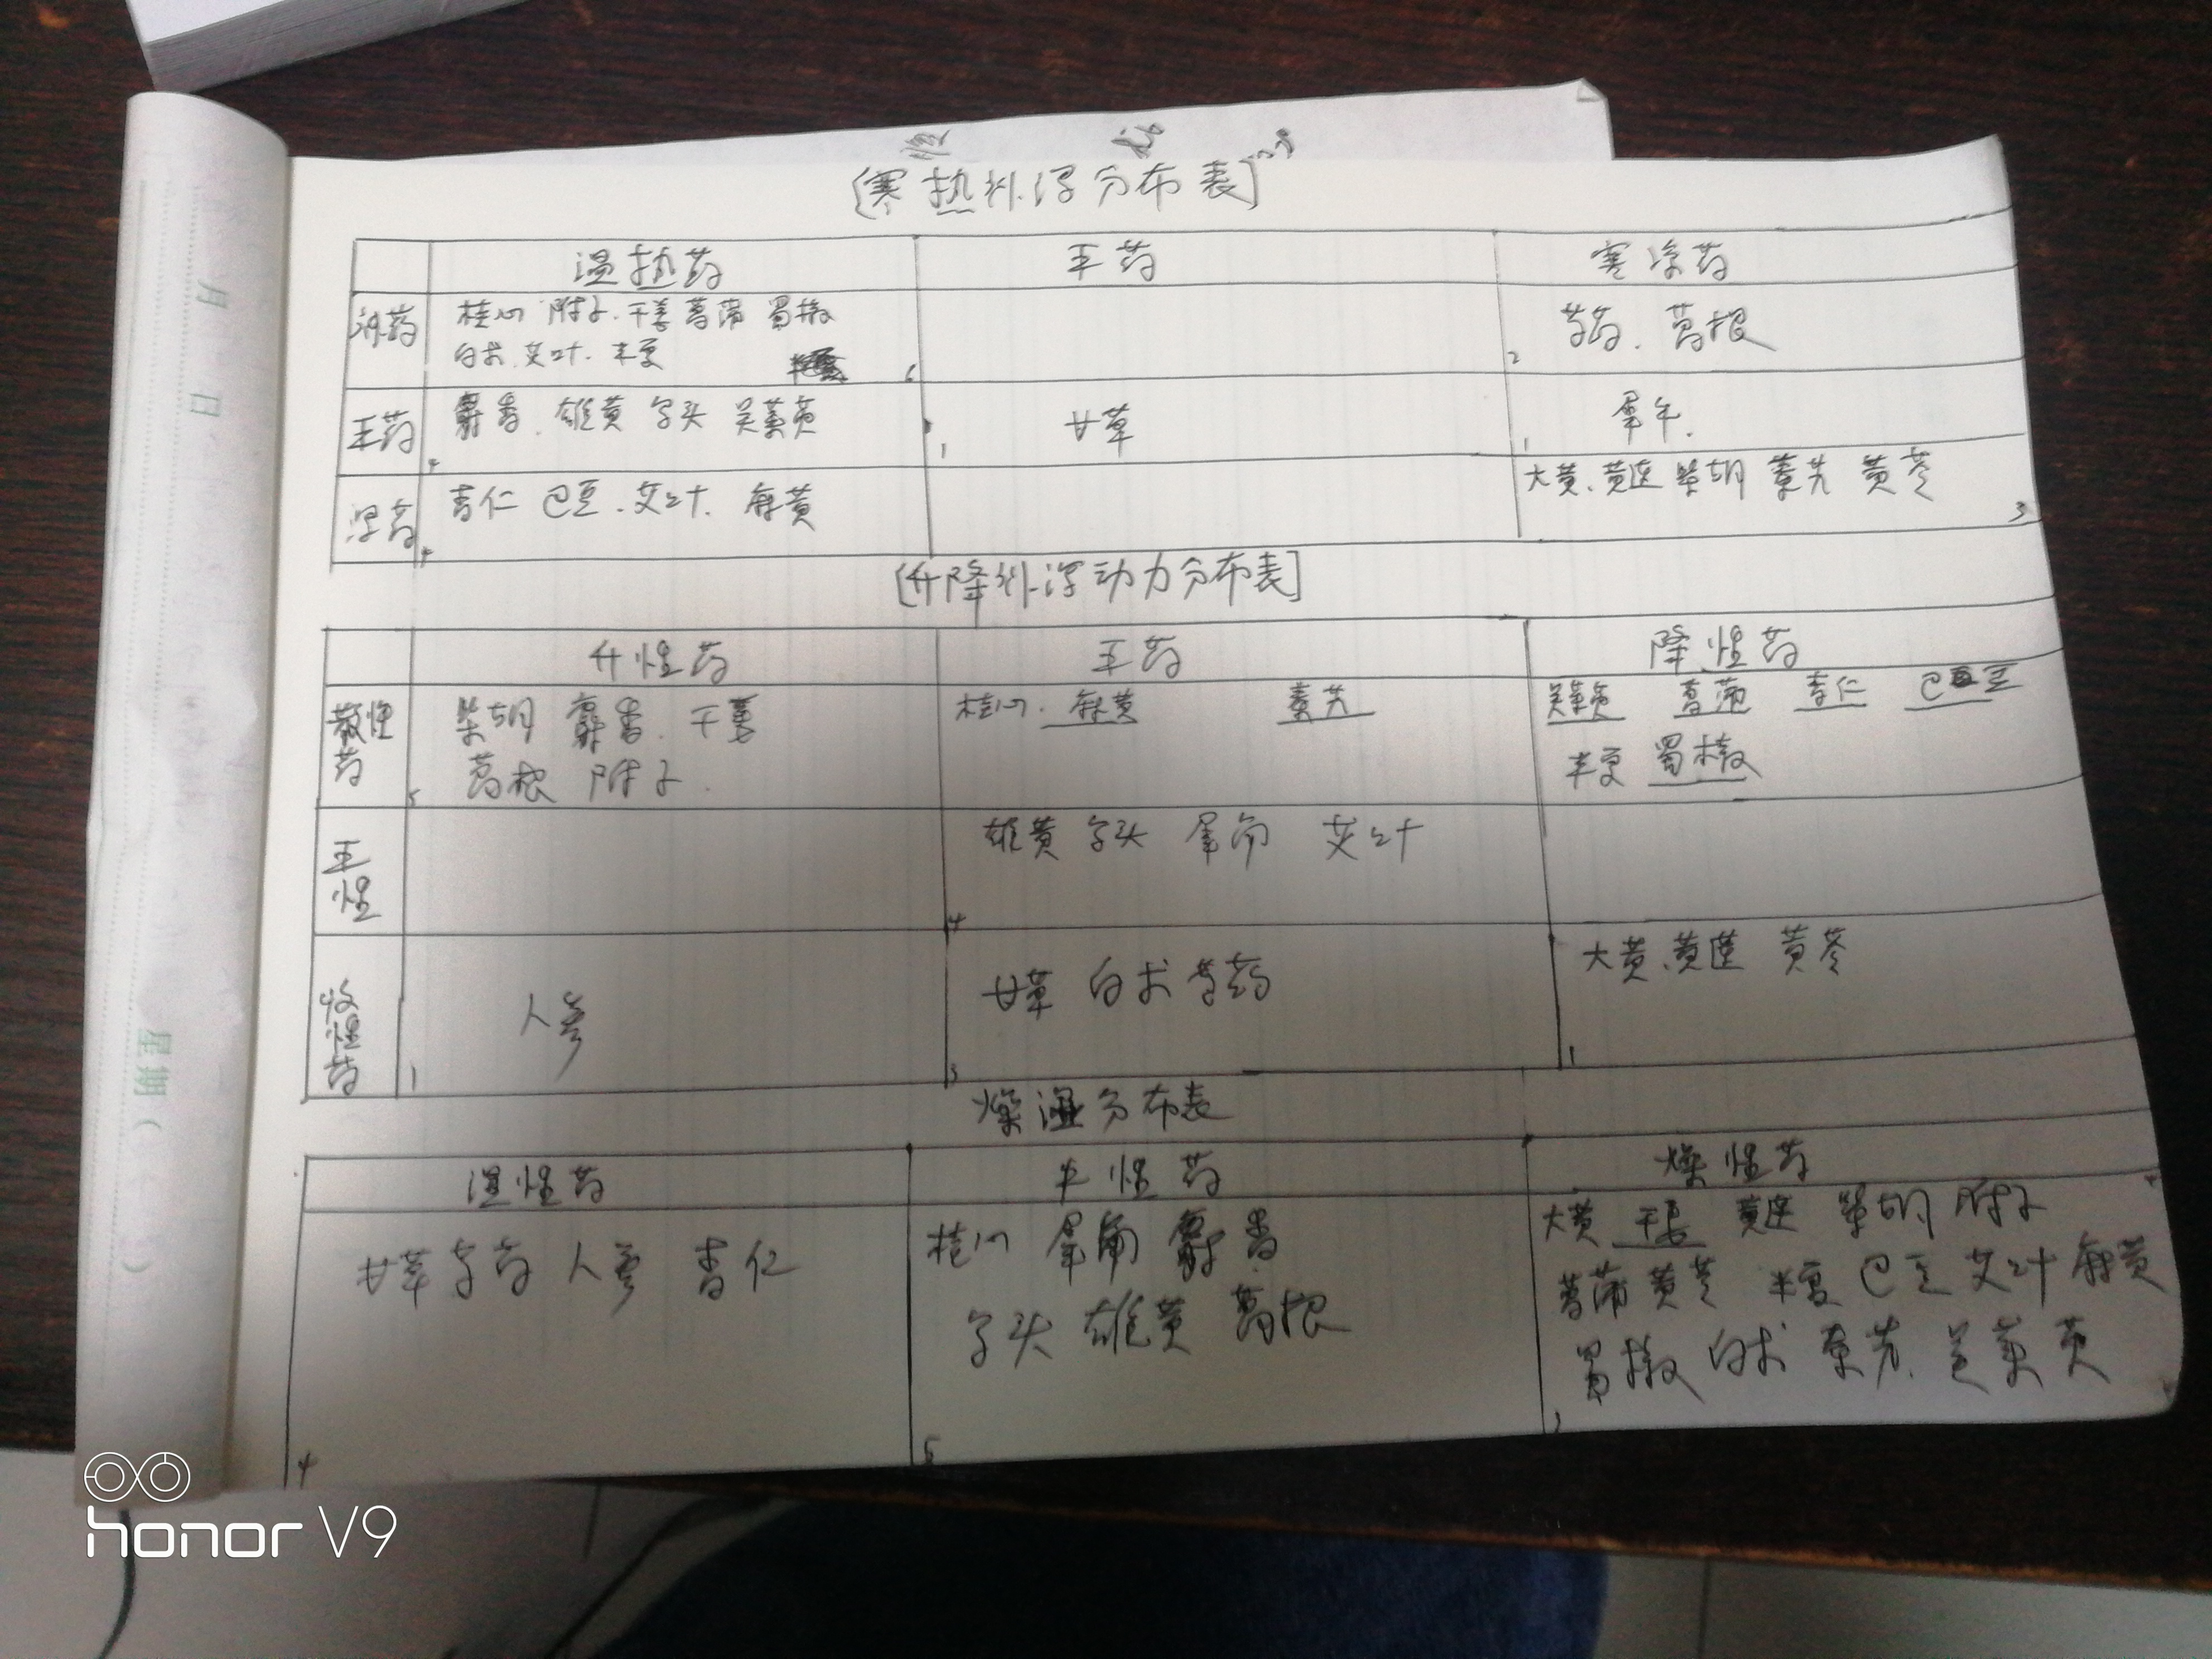 [寒热沉浮分布表]
温热药 平药 寒凉药
沉药 桂心 附子.干姜 菖蒲 蜀椒
白术.艾叶.半夏 6
2 芍药.葛根
平药 麝香.雄黄 吴茱萸
1 甘草
1 犀牛.
浮药 杏仁 巴豆.艾叶.麻黄
大黄.黄连 柴胡 秦艽 黄芩 3
[升降沉浮动力分布表]
升性药 平药 降性药
散性药 柴胡 麝香.干姜
葛根 附子. 5
桂心.麻黄 秦艽
吴茱萸 菖蒲 杏仁 巴豆
半夏 蜀椒
平性
雄黄 犀角 艾叶 4
收性药 人参 1
甘草 白术 芍药 3
大黄.黄连 黄芩 1
燥湿分布表
湿性药 平性药 燥性药
甘草 芍药 人参 杏仁 4
桂心 犀角 麝香
雄黄 葛根 5
大黄 干姜 黄连 柴胡 附子
菖蒲 黄芩 半夏 巴豆 艾叶 麻黄
蜀椒 白术 秦艽.吴茱萸
月 日 星期( )
honor V9